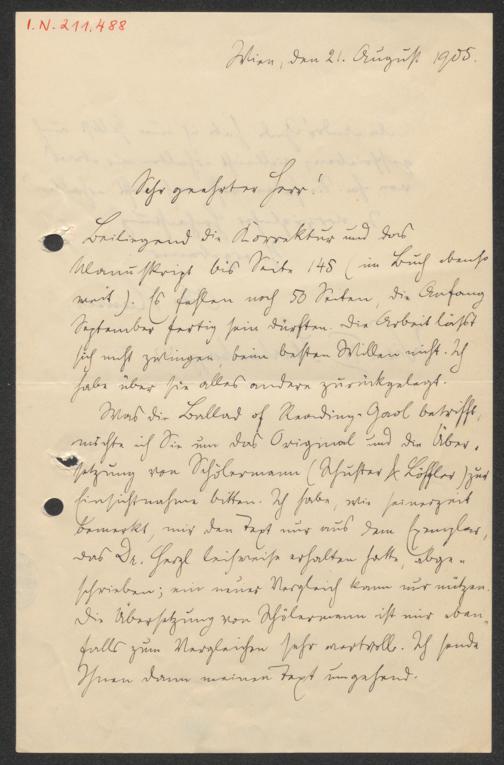 I.N. 211.488
Wien, den 21. August 1905.
Sehr geehrter Herr!
Beiliegend die Korrektur und das
Manuskript bis Seite 145 (im Buch ebenso
weit). Es fehlen noch 50 Seiten, die Anfang
September fertig sein dürften. Die Arbeit läßt
sich nicht zwingen, beim besten Willen nicht. Ich
habe über sie alles andere zurückgelegt.
Was die Ballad of Reading-Gaol betrifft,
möchte ich Sie um das Original und die Über-
setzung von Schölermann (Schuster & Löffler) zur
Einsichtnahme bitten. Ich habe, wie seinerzeit
bemerkt, mir den Text nur aus dem Exemplar,
das Dr. Herzl leihweise erhalten hatte, abge-
schrieben; ein neuer Vergleich kann nur nützen.
Die Übersetzung von Schölermann ist mir eben-
falls zum Vergleichen sehr wertvoll. Ich sende
Ihnen dann meinen Text umgehend.